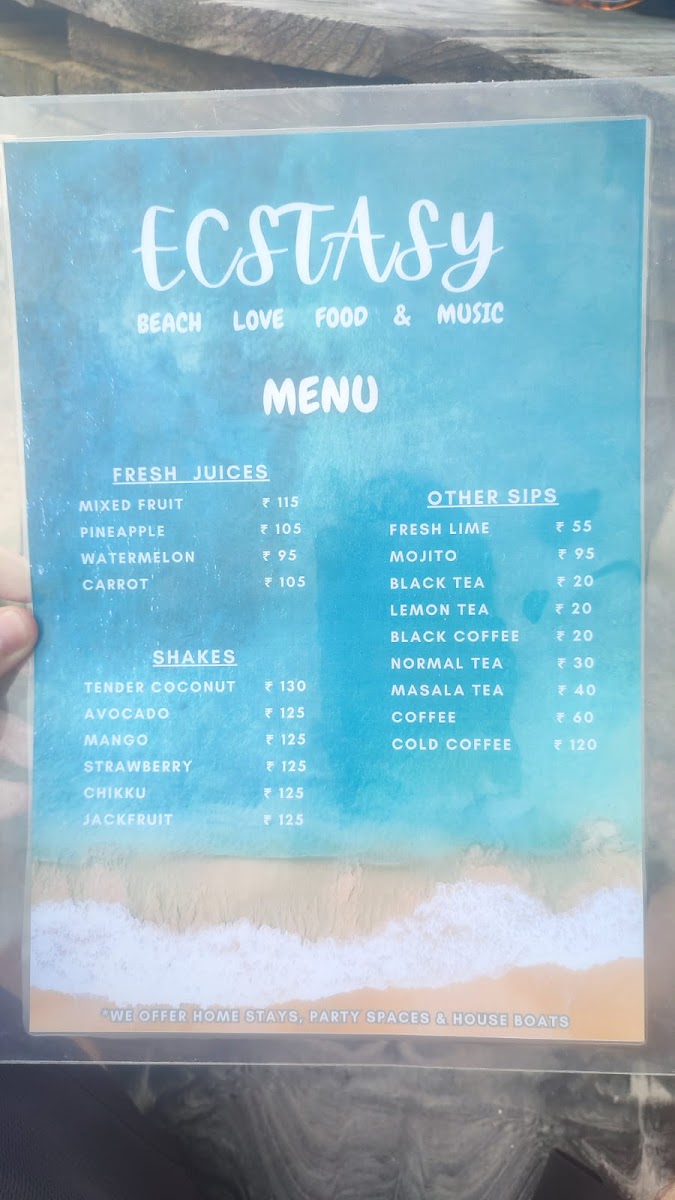 ECSTASY
BEACH LOVE FOOD & MUSIC
MENU
FRESH JUICES
MIXED FRUIT ₹ 115
PINEAPPLE ₹ 105
WATERMELON ₹ 95
CARROT ₹ 105
SHAKES
TENDER COCONUT ₹ 130
AVOCADO ₹ 125
MANGO ₹ 125
STRAWBERRY ₹ 125
CHIKKU ₹ 125
JACKFRUIT ₹ 125
OTHER SIPS
FRESH LIME ₹ 55
MOJITO ₹ 95
BLACK TEA ₹ 20
LEMON TEA ₹ 20
BLACK COFFEE ₹ 20
NORMAL TEA ₹ 30
MASALA TEA ₹ 40
COFFEE ₹ 60
COLD COFFEE ₹ 120
*WE OFFER HOME STAYS, PARTY SPACES & HOUSE BOATS